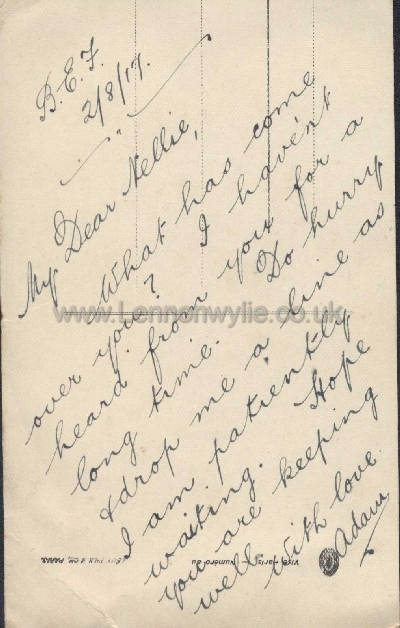 B.E.F.
2/8/17.
My Dear Nellie,
What has come
over you? I haven't
heard from you for a
long time. Do hurry
& drop me a line as
I am patiently
waiting. Hope
you are keeping
well with love
Adam
www.Lennonwylie.co.uk
Visé Paris
Numéro du
PARIS.